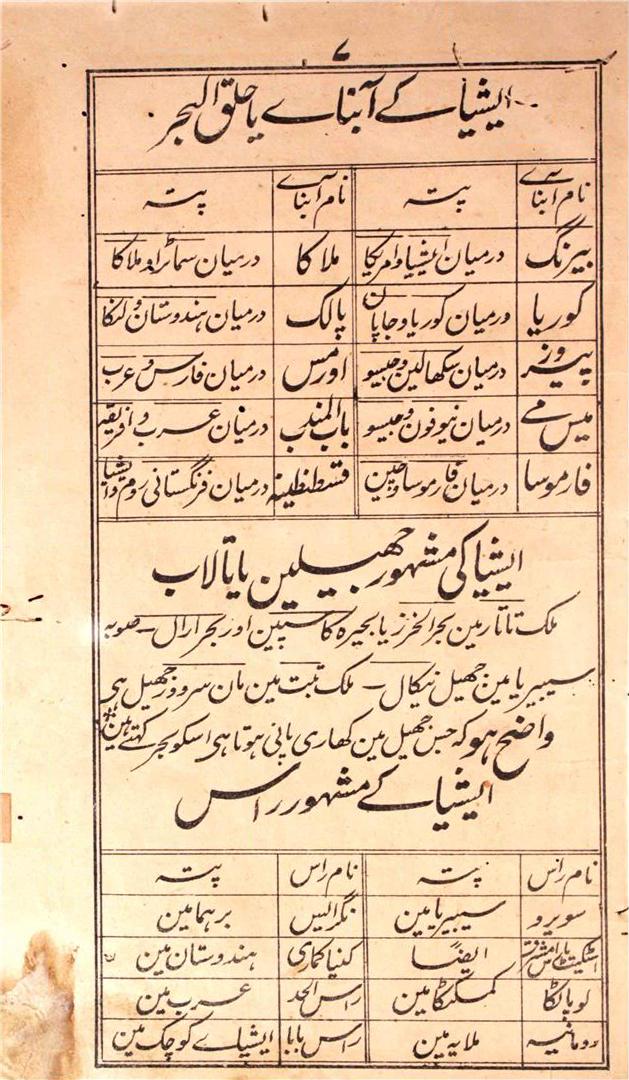 ۷
ایشیاے کے آبناے یا حلق البحر
نام ابناے پتہ نام ابناے پتہ
بیرنگ درمیان ایشیا و امریکا ملاکا درمیان سماٹرا و ملاکا
کوریا درمیان کوریا و جاپان پالک درمیان ہندوستان و لنکا
پیروز درمیان سکھالین و جیسو اورمس درمیان فارس و عرب
میس مے درمیان نیوفون و جیسو باب المندب درمیان عرب و افریقہ
فارموسا درمیان فارموسا و چین قسطنطنیہ درمیان فرنگستانی روم و ایشیا
ایشیا کی مشہور جھیلین یا تالاب
ملک تاتار مین بحر الخزر یا بحیرہ کاسپین اور بحر ارال ۔ صوبہ
سیبیریا مین جھیل بیکال ۔ ملک تبت مین مان سرور جھیل ہی
واضح ہو کہ جس جھیل مین کھاری پانی ہوتا ہی اسکو بحر کہتے ہین
ایشیاے کے مشہور راس
نام راس پتہ نام راس پتہ
سویرو سیبیریا مین نگرالیس برہما مین
ایضًا کنیا کماری ہندوستان مین
لوپاٹکا کمسکٹکا مین راس الحد عرب مین
رومانیہ ملایہ مین راس بابا ایشیاے کوچک مین